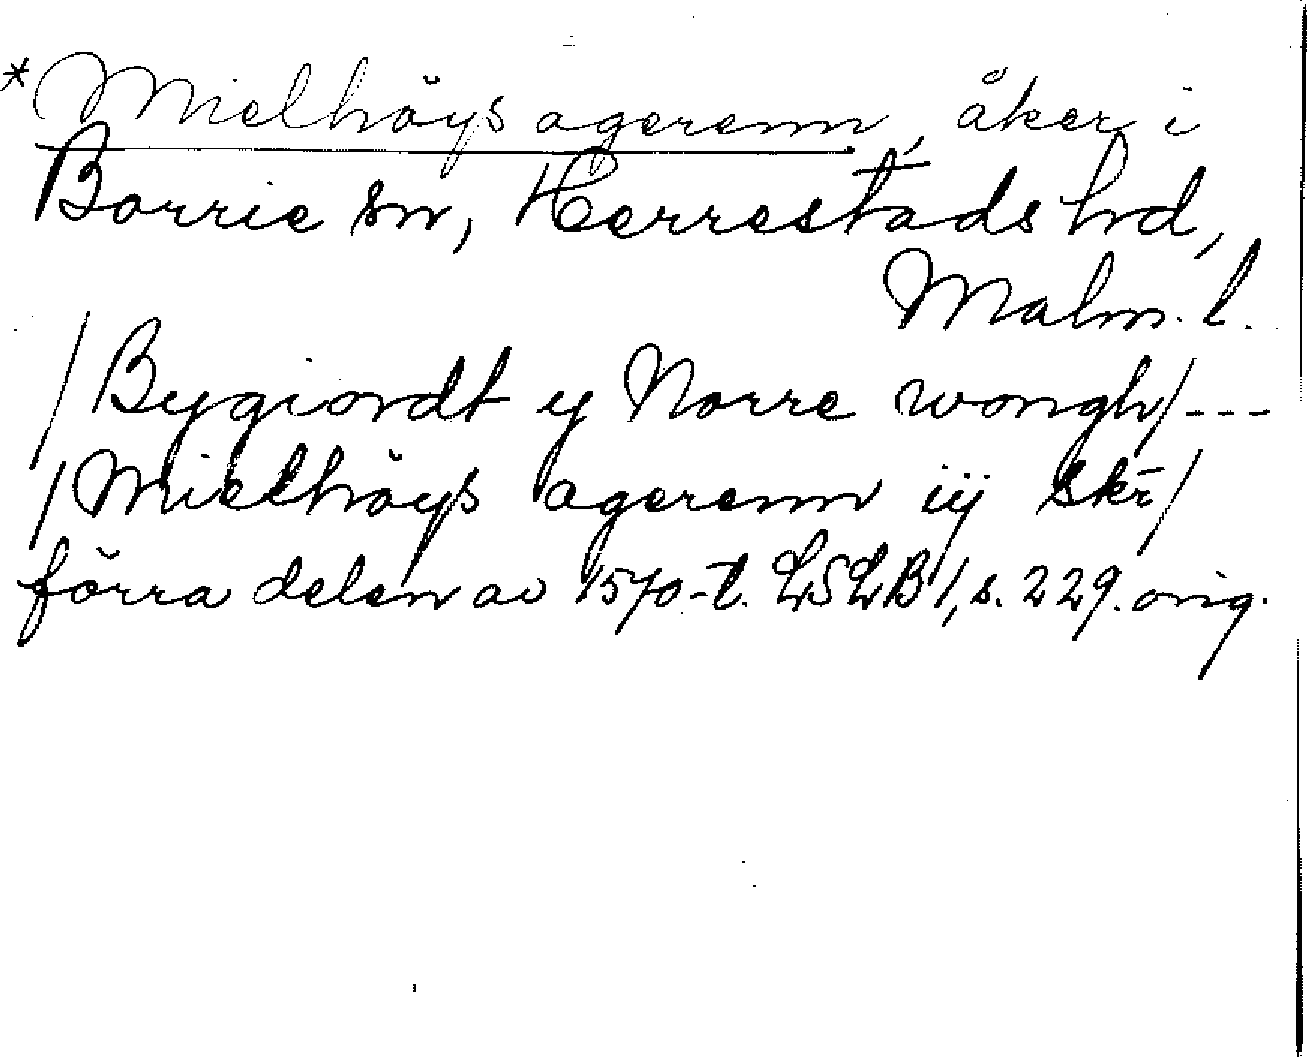 *Mielhöys agerenn, åker i
Borrie sn, Herrestads hd,
Malm. l.
/Bygiordt y Norre wongh/---
/Mielhöys agerenn iij skr̄/
förra delen av 1570-t. LSLB 1, s. 229. orig.